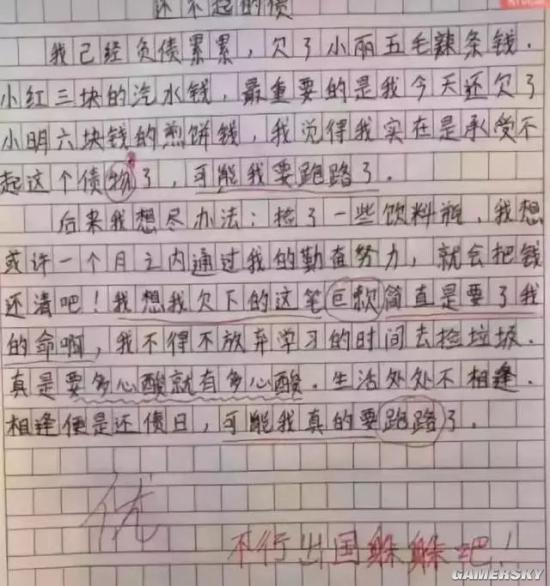 还不起的债
我已经负债累累，欠了小丽五毛辣条钱，
小红三块的汽水钱，最重要的是我今天还欠了
小明六块钱的煎饼钱，我觉得我实在是承受不
起这个债物了，可能我要跑路了。
后来我想尽办法：捡了一些饮料瓶，我想
或许一个月之内通过我的勤奋努力，就会把钱
还清吧！我想我欠下的这笔巨款简直是要了我
的命啊，我不得不放弃学习的时间去捡垃圾。
真是要多心酸就有多心酸。生活处处不相逢。
相逢便是还债日，可能我真的要跑路了。
优
不行出国躲躲吧！
GAMERSKY